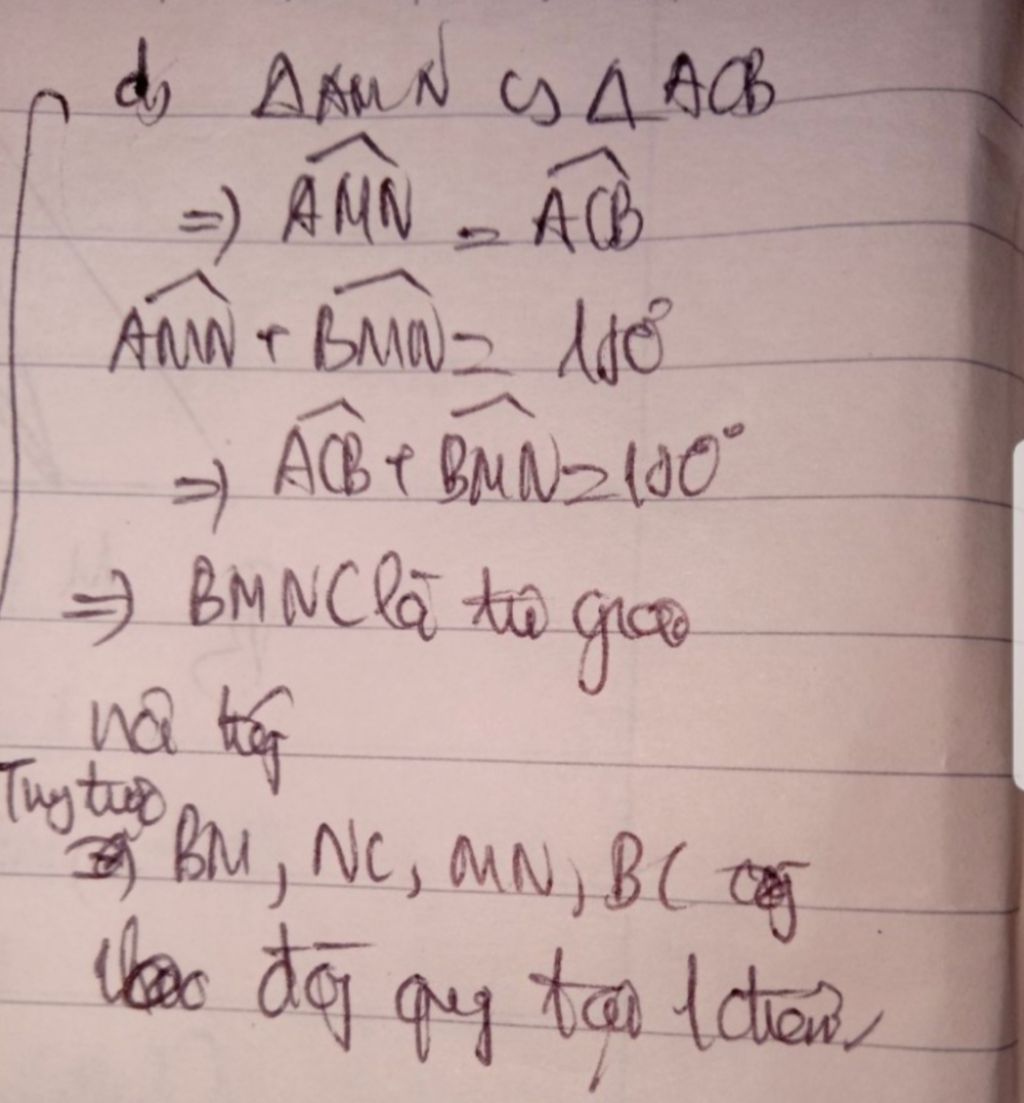 d, ΔAMN ∽ Δ ACB
=> \widehat{AMN} = \widehat{ACB}
\widehat{AMN} + \widehat{BMN} = 180°
=> \widehat{ACB} + \widehat{BMN} = 180°
=> BMNC là tứ giác
nội tiếp
BM, NC, MN, BC
đồng quy tại 1 điểm